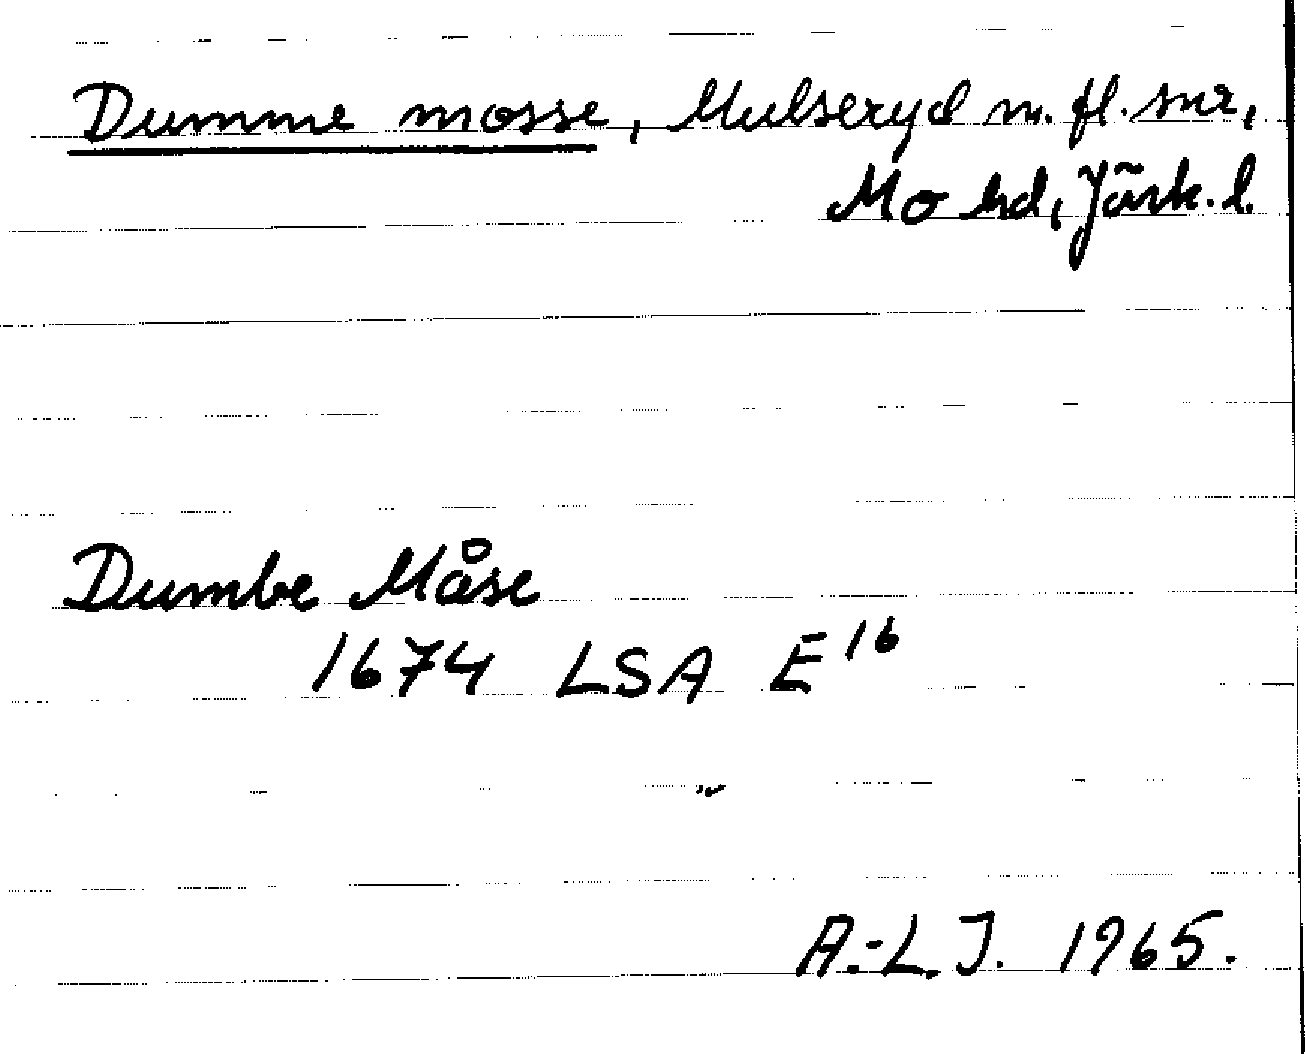 Dumme mosse, Mulseryd m. fl. snr,
Mo hd, Jönk. l.
Dumbe Måse
1674 LSA E 16
A.-L. J. 1965.